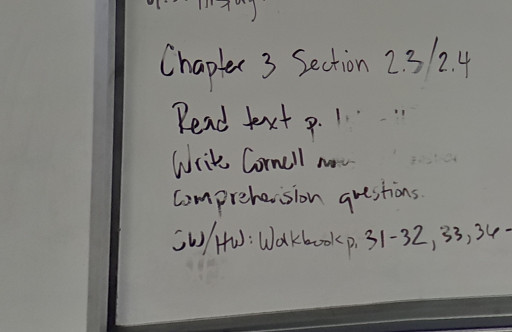 Chapter 3 Section 2.3/2.4
Read text p.
Write Cornell
Comprehension questions.
CW/HW: Workbook p. 31-32, 33, 34-